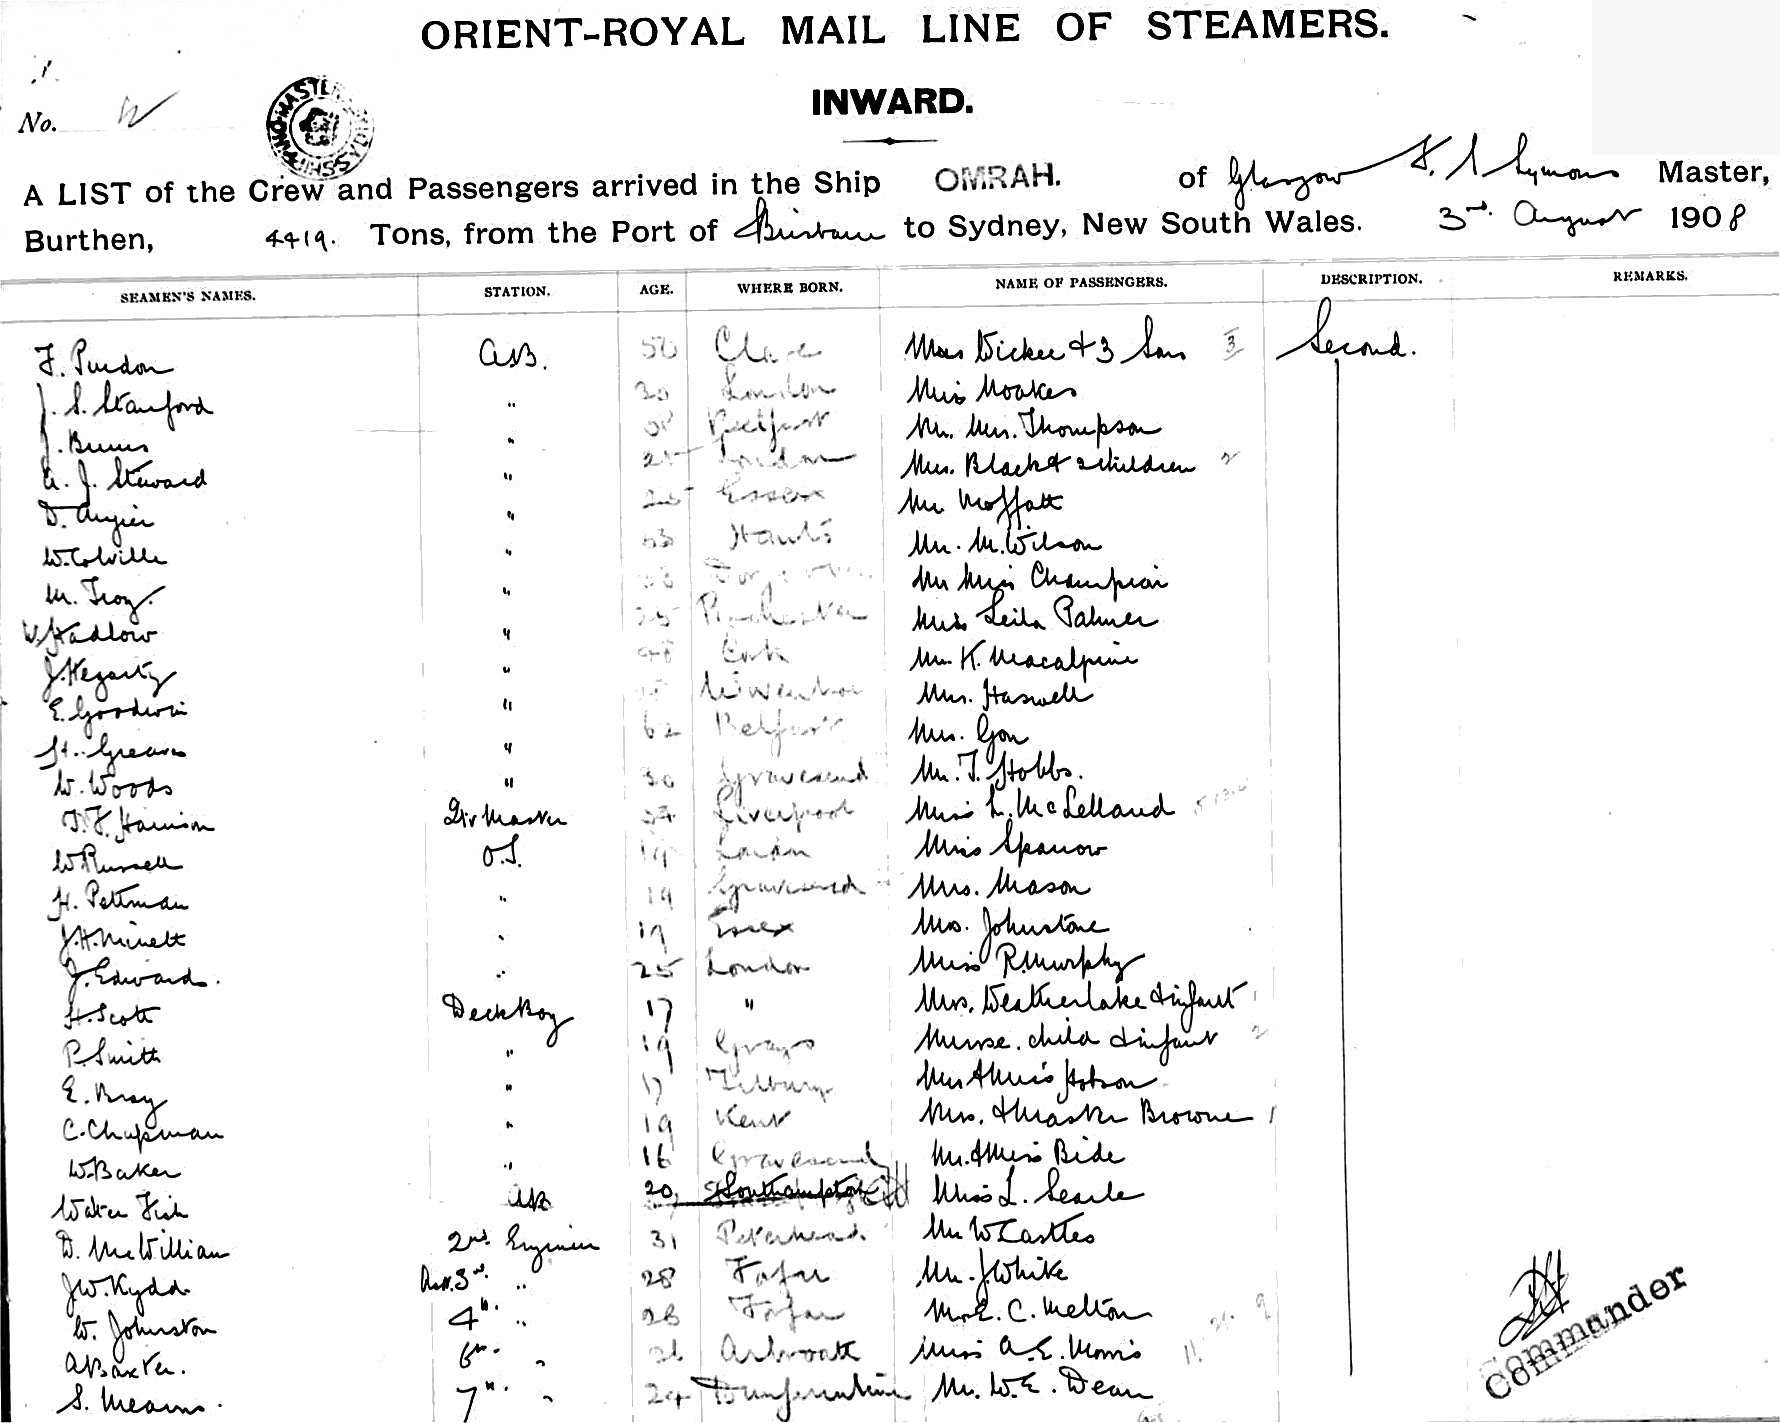 ORIENT-ROYAL MAIL LINE OF STEAMERS.
INWARD.
No.
A LIST of the Crew and Passengers arrived in the Ship OMRAH. of Glasgow Symons Master,
Burthen, 4419. Tons, from the Port of Brisbane to Sydney, New South Wales. 3rd. August 1908
SEAMEN'S NAMES. STATION. AGE. WHERE BORN. NAME OF PASSENGERS. DESCRIPTION. REMARKS.
F. Purdon A.B. 50 Clare & 3 Sons 3 Second.
J. S. Stanford " 30 London Miss Noakes
J. Burns " Belfast Mr. Mrs. Thompson
A. J. Steward " 25 London Mrs. Black & 2 children 2
D. Angier " 25 Essex Mr Moffatt
W. Colville " 53 Hants Mr. M. Wilson
M. Troy. " Mr Miss Champion
W. Hadlow " 25 Miss Leila Palmer
J. Hegarty " 48 Cork Mr K. Macalpine
E. Goodwin " Mrs. Haswell
H. Greaves " 62 Belfast Mrs. Gon
W. Woods " 30 Gravesend Mr. T. Hobbs.
T. F. Harrison Qr Master Liverpool Miss L. McLelland
W Russell O.S. 19 London Miss Sparrow
H. Pettman " 19 Gravesend Mrs. Mason
J. H. Minett " 19 Essex Mrs. Johnstone
J. Edwards. " 25 London Miss R. Murphy
H. Scott Deck Boy 17 " Mrs. Weatherlake & infant 1
P. Smith " 19 Grays Nurse. child & infant 2
E. Bray " 17 Tilbury Mr & Miss Hobson
C. Chapman " 19 Kent Mrs. & Master Browne 1
W. Baker " 16 Gravesend Mr. & Miss Bide
Walter Fish AB 20 Southampton Miss L. Searle
D. McWillian 2nd. Engineer 31 Peterhead Mr W Castles
J. W. Kydd 3rd. " 28 Forfar Mr. J White
W. Johnston 4th. " 26 Forfar C. Melton
A Baxter. 6th. " 26 Arbroath Miss A. E. Morris
S. Mearns. 7th. " 24 Dunfermline Mr. W. E. Dean
Commander